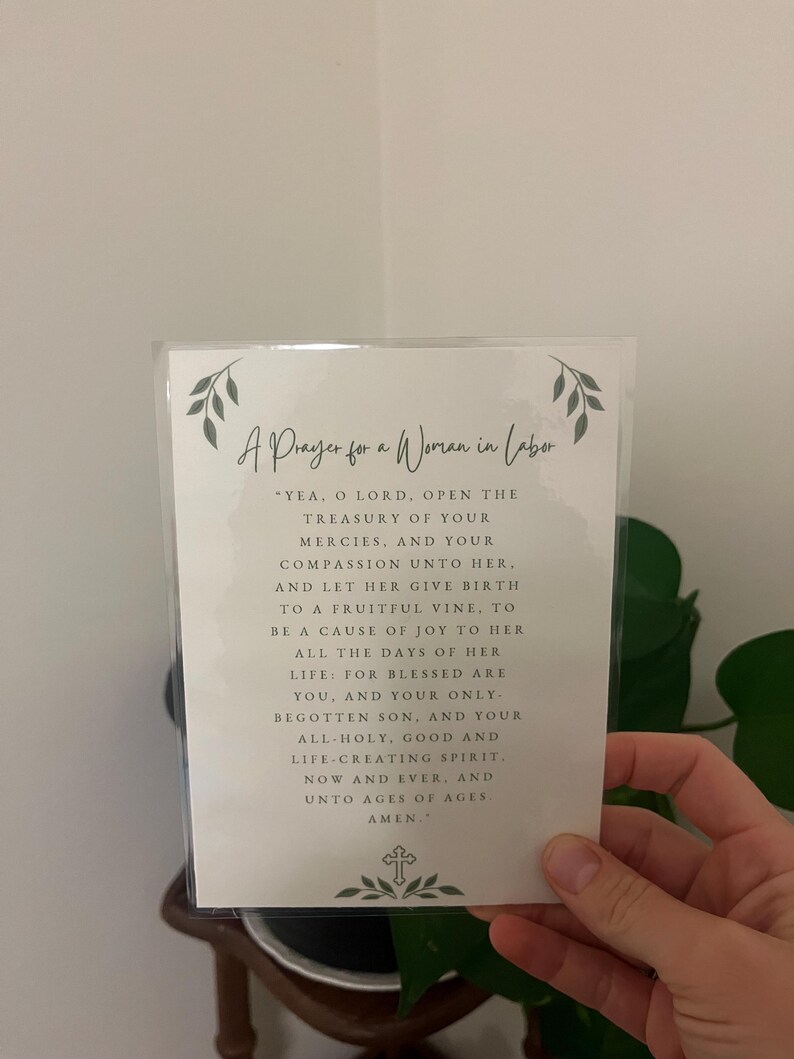 A Prayer for a Woman in Labor
“YEA, O LORD, OPEN THE
TREASURY OF YOUR
MERCIES, AND YOUR
COMPASSION UNTO HER,
AND LET HER GIVE BIRTH
TO A FRUITFUL VINE, TO
BE A CAUSE OF JOY TO HER
ALL THE DAYS OF HER
LIFE: FOR BLESSED ARE
YOU, AND YOUR ONLY-
BEGOTTEN SON, AND YOUR
ALL-HOLY, GOOD AND
LIFE-CREATING SPIRIT,
NOW AND EVER, AND
UNTO AGES OF AGES.
AMEN.”